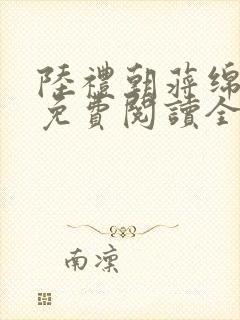 陸禮朝蔣綿
免費閱讀全
南凜